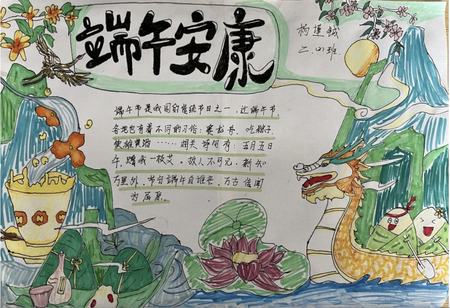 端午安康
二.(1)班
端午节是我国的传统节日之一,过端午节,
各地也有着不同的习俗:赛龙舟、吃粽子、
饮雄黄酒…… 相关诗句有:五月五日
午,赠我一枝艾。故人不可见,新知
万里外。节分端午自谁言,万古传闻
为屈原。